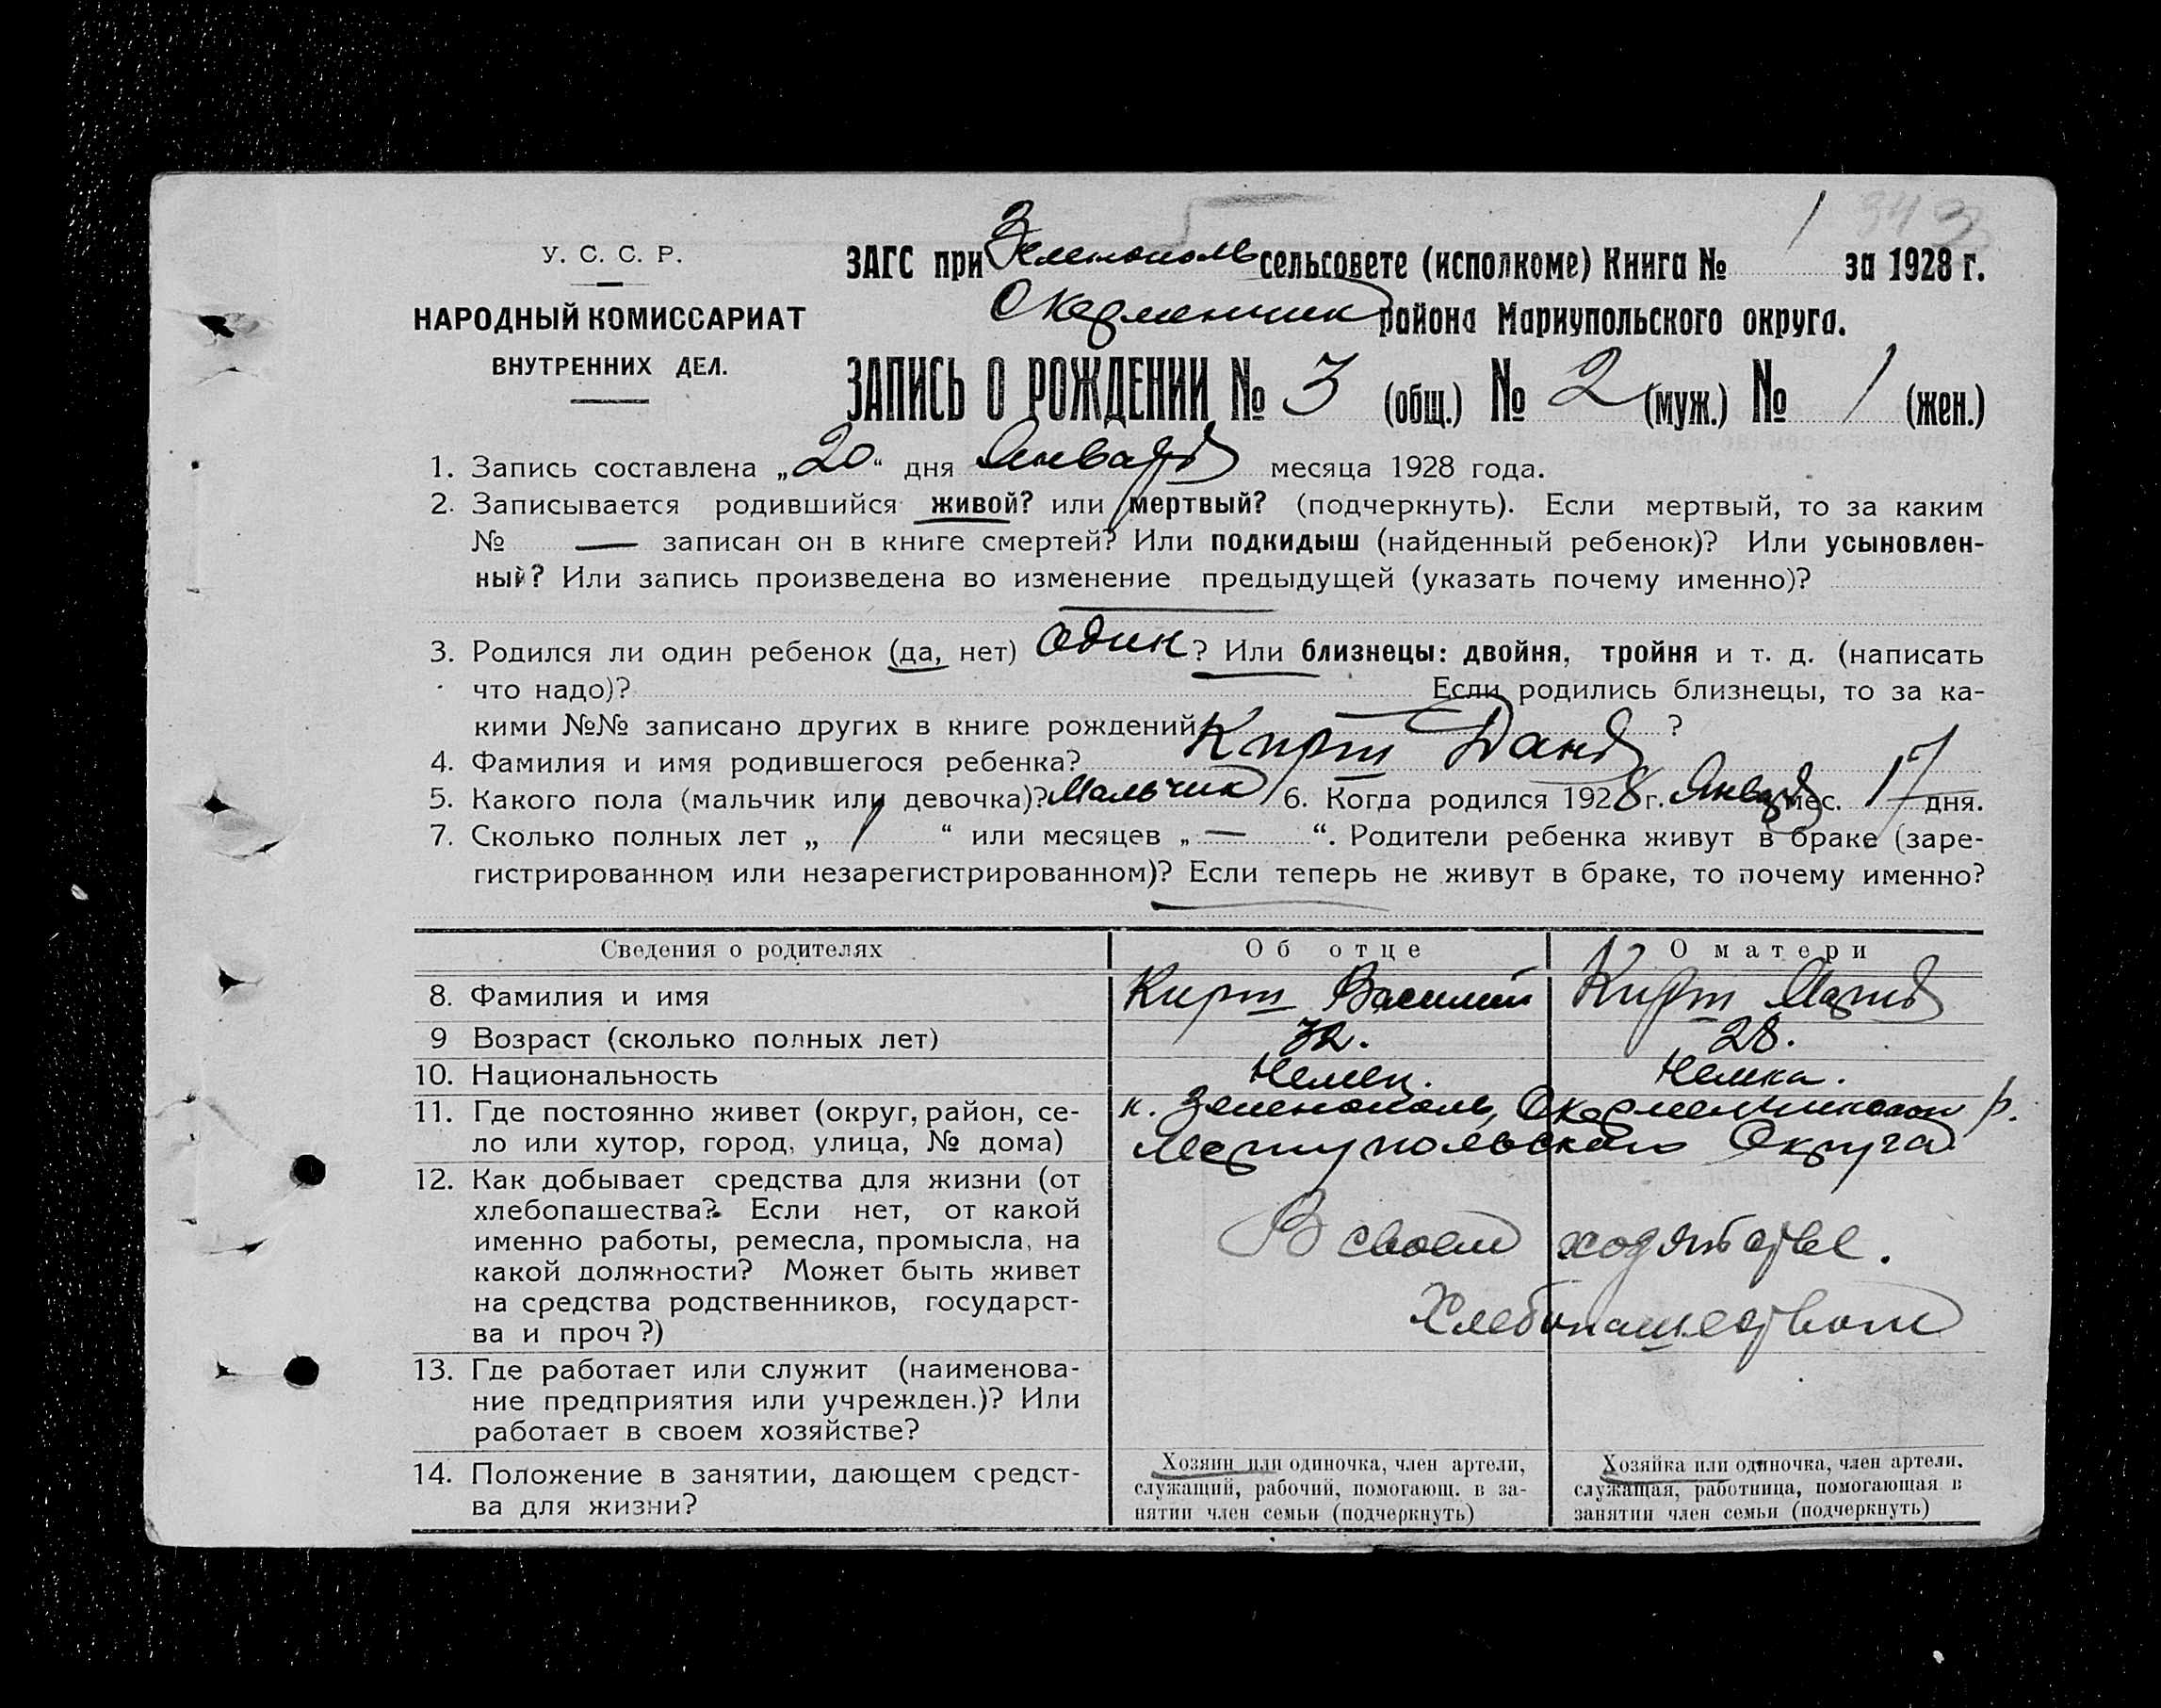 У. С. С. Р.
НАРОДНЫЙ КОМИССАРИАТ
ВНУТРЕННИХ ДЕЛ.
ЗАГС при Зеленополь сельсовете (исполкоме) Книга № 1 за 1928 г.
района Мариупольского округа.
ЗАПИСЬ О РОЖДЕНИИ № 3 (общ.) № 2 (муж.) № 1 (жен.)
1. Запись составлена „20“ дня Января месяца 1928 года.
2. Записывается родившийся живой? или мертвый? (подчеркнуть). Если мертвый, то за каким
№ — записан он в книге смертей? Или подкидыш (найденный ребенок)? Или усыновлен-
ный? Или запись произведена во изменение предыдущей (указать почему именно)?
3. Родился ли один ребенок (да, нет) один? Или близнецы: двойня, тройня и т. д. (написать
что надо)? Если родились близнецы, то за ка-
кими №№ записано других в книге рождений ?
4. Фамилия и имя родившегося ребенка? Кирш
5. Какого пола (мальчик или девочка)? Мальчик 6. Когда родился 1928 г. Января мес. 17 дня.
7. Сколько полных лет „ 1 “ или месяцев „ — “. Родители ребенка живут в браке (заре-
гистрированном или незарегистрированном)? Если теперь не живут в браке, то почему именно?
Сведения о родителях Об отце О матери
8. Фамилия и имя Кирш Василий Кирш Мария
9 Возраст (сколько полных лет) 32. 28.
10. Национальность Немец. Немка.
11. Где постоянно живет (округ, район, се-
ло или хутор, город, улица, № дома)
к. Зеленополь, р.
Мариупольского Округа
12. Как добывает средства для жизни (от
хлебопашества? Если нет, от какой
именно работы, ремесла, промысла, на
какой должности? Может быть живет
на средства родственников, государст-
ва и проч?)
В своем
Хлебопашеством
13. Где работает или служит (наименова-
ние предприятия или учрежден.)? Или
работает в своем хозяйстве?
14. Положение в занятии, дающем средст-
ва для жизни?
Хозяин или одиночка, член артели,
служащий, рабочий, помогающ. в за-
нятии член семьи (подчеркнуть)
Хозяйка или одиночка, член артели,
служащая, работница, помогающая в
занятии член семьи (подчеркнуть)